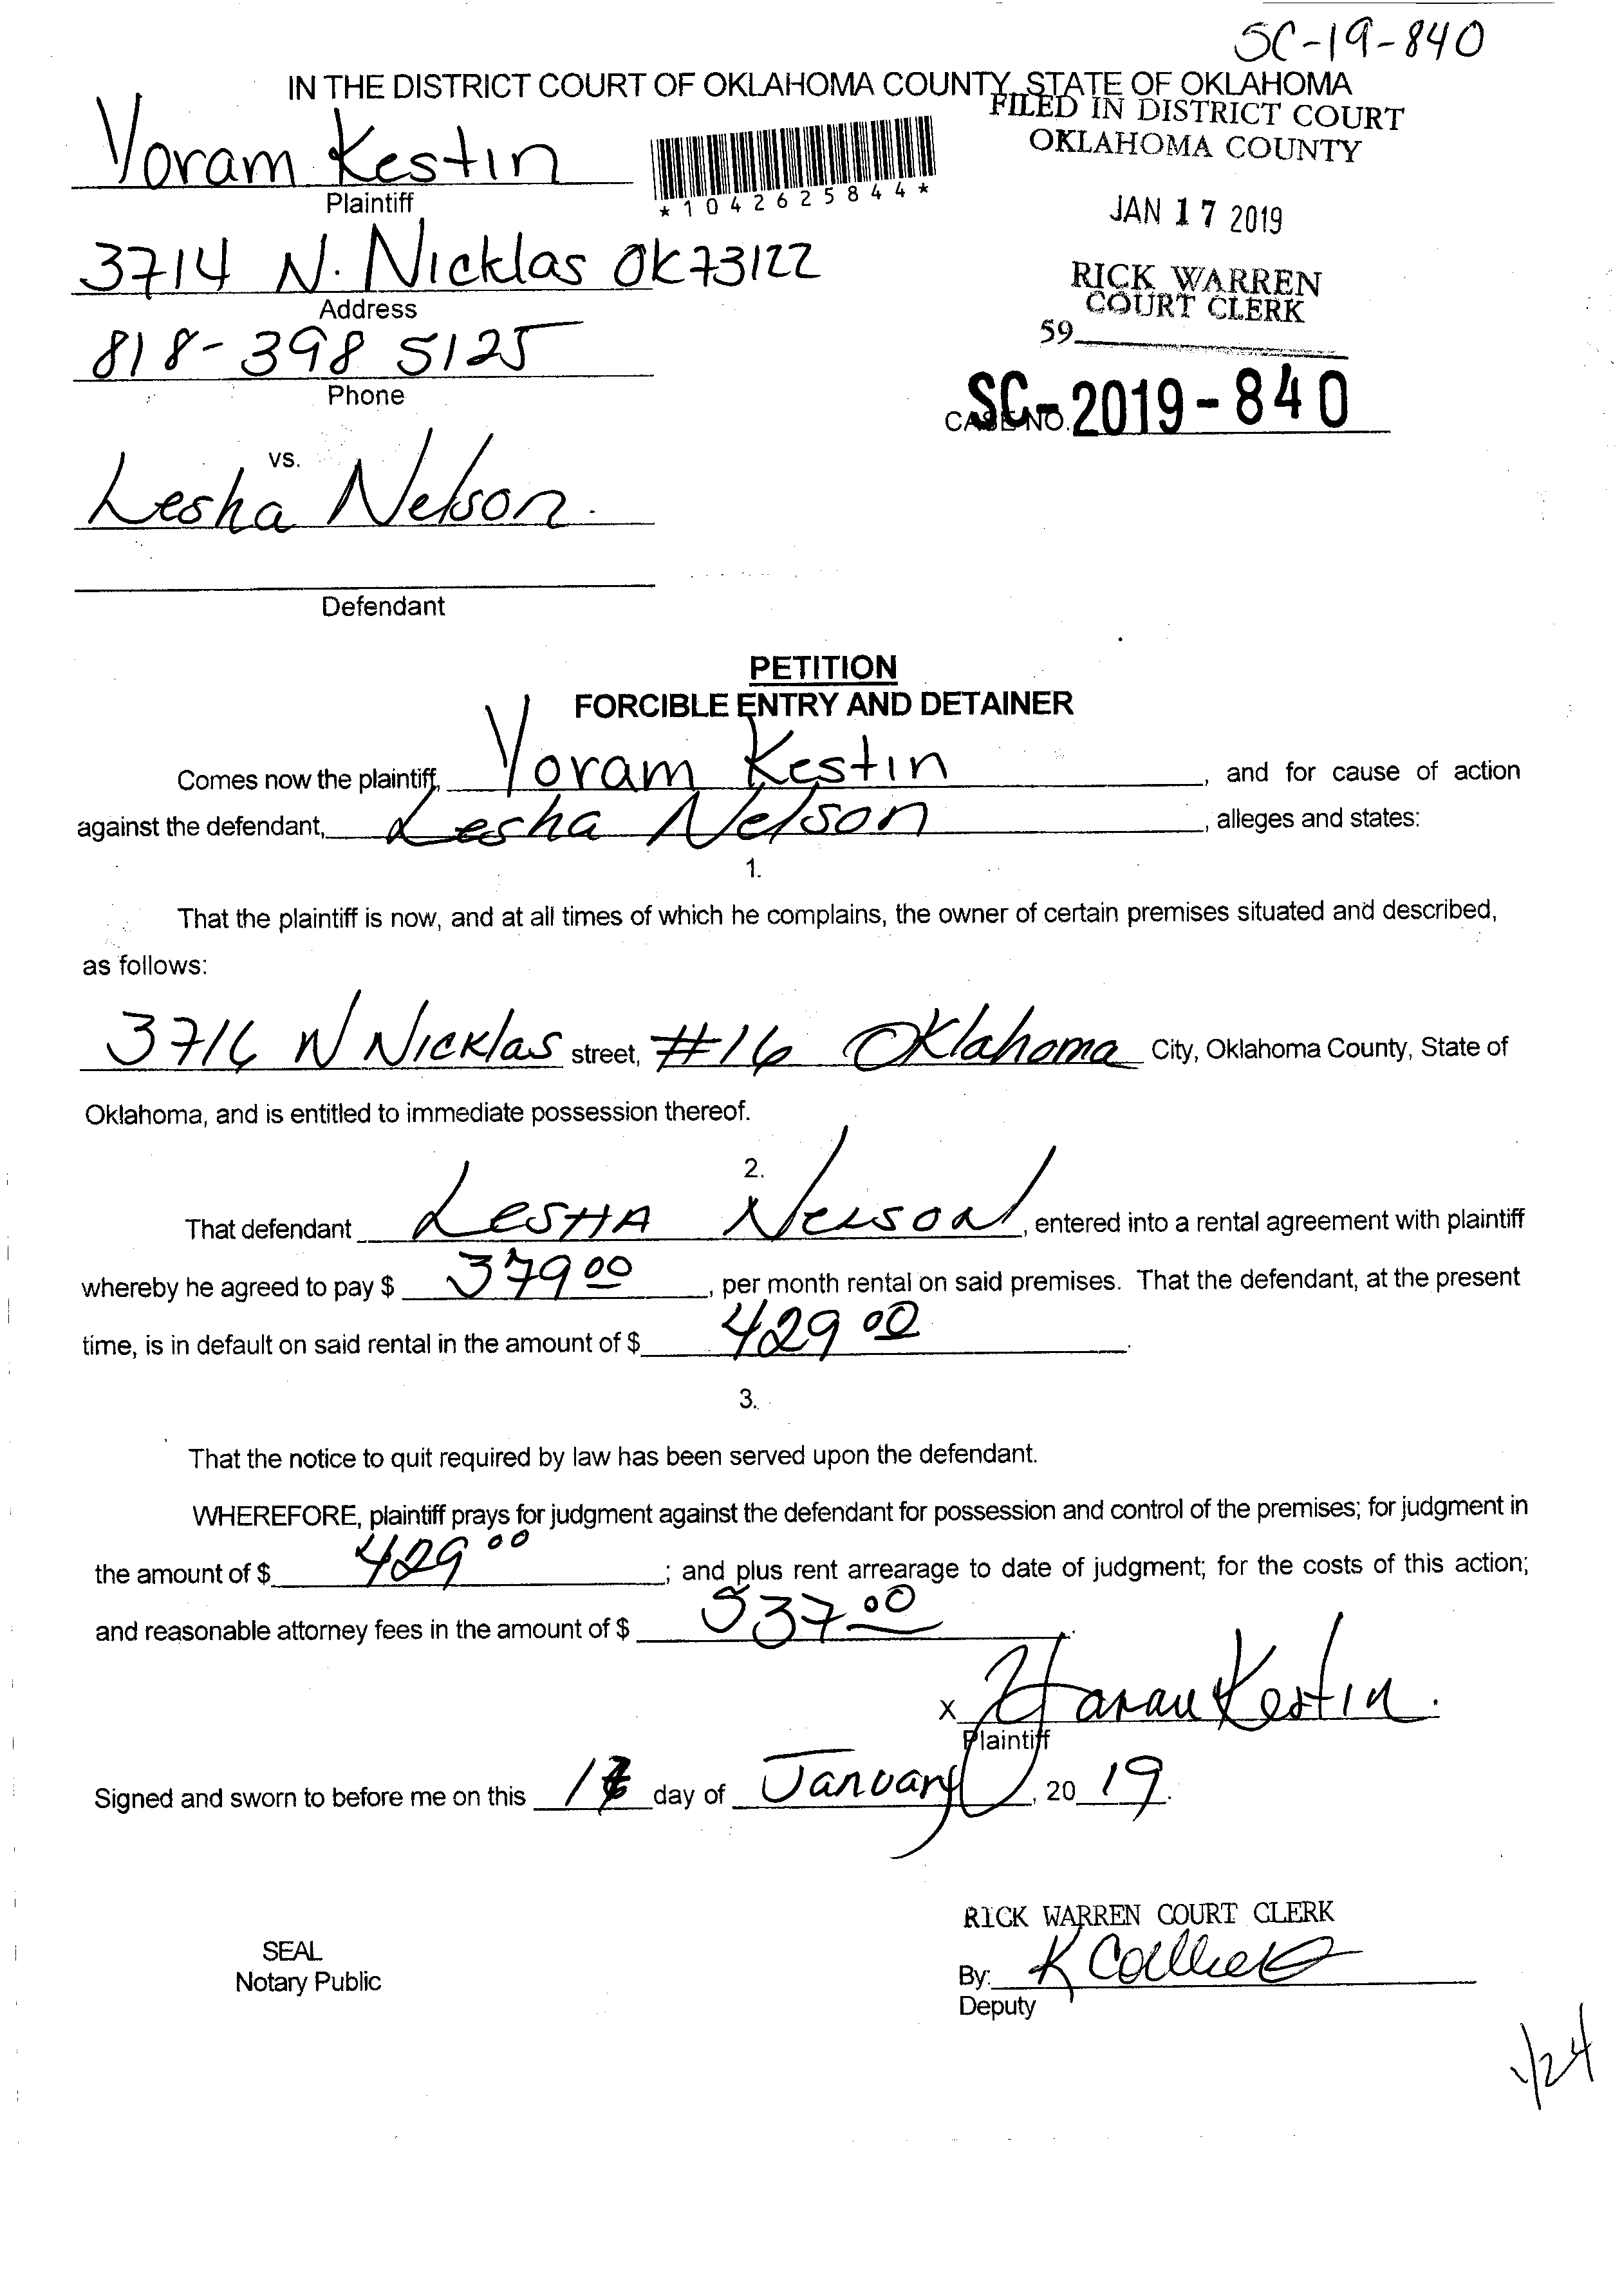 SC-19-840
IN THE DISTRICT COURT OF OKLAHOMA COUNTY, STATE OF OKLAHOMA
FILED IN DISTRICT COURT
OKLAHOMA COUNTY
Yoram Kestin
Plaintiff
*1042625844*
JAN 17 2019
3714 N. Nicklas OK 73122
Address
RICK WARREN
COURT CLERK
59
818-398 5125
Phone
CASE NO. SC-2019-840
vs.
Lesha Nelson.
Defendant
PETITION
FORCIBLE ENTRY AND DETAINER
Comes now the plaintiff, Yoram Kestin, and for cause of action
against the defendant, Lesha Nelson, alleges and states:
1.
That the plaintiff is now, and at all times of which he complains, the owner of certain premises situated and described,
as follows:
3716 N Nicklas street, #16 Oklahoma City, Oklahoma County, State of
Oklahoma, and is entitled to immediate possession thereof.
2.
That defendant Lesha Nelson, entered into a rental agreement with plaintiff
whereby he agreed to pay $ 379 00, per month rental on said premises. That the defendant, at the present
time, is in default on said rental in the amount of $ 429 00.
3.
That the notice to quit required by law has been served upon the defendant.
WHEREFORE, plaintiff prays for judgment against the defendant for possession and control of the premises; for judgment in
the amount of $ 429 00; and plus rent arrearage to date of judgment; for the costs of this action;
and reasonable attorney fees in the amount of $ 537 00.
X Yoram Kestin.
Plaintiff
Signed and sworn to before me on this day of January, 20 19.
RICK WARREN COURT CLERK
SEAL
Notary Public
By: K
Deputy
1/24